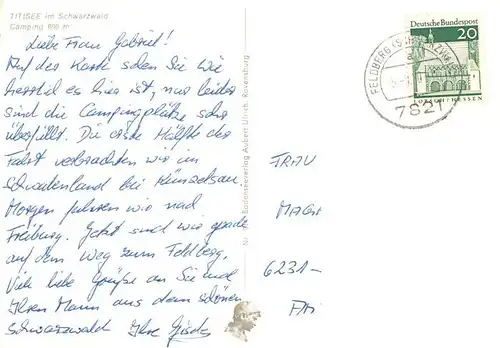 TITISEE im Schwarzwald
Camping 800 m
Liebe Frau Gabriel!
Auf der Karte sehen Sie wie
herrlich es hier ist, nur leider
sind die Campingplätze sehr
überfüllt. Die erste Hälfte der
Fahrt verbrachten wir im
Schwabenland bei Künzelsau.
Morgen fahren wir nach
Freiburg. Jetzt sind wir gerade
auf dem Weg zum Feldberg.
Viele liebe Grüße an Sie und
Ihren Mann aus dem schönen
Schwarzwald Ihre
Bodenseeverlag Aubert Ullrich, Ravensburg
Deutsche Bundespost
20
LORSCH/HESSEN
FELDBERG (SCHWARZW)
7821
FRAU
6231-